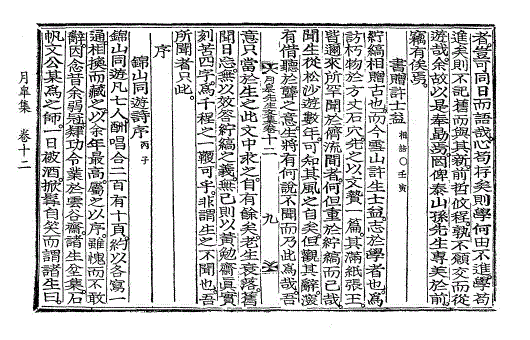 者豈可同日而語哉心苟存矣則學何由不進學苟
進矣則不記舊而與其新前哲攸程孰不願交而從
遊哉余故以是奉勗焉因俾泰山孫先生專美於前
竊有俟焉
書贈許士益 相喆○壬寅
紵縞相贈古也而今雲山許生士益志於學者也爲
訪朽物於方丈石穴先之以文贄一篇其滿紙張王
皆邇來所罕聞於儕流間者何但重於紵縞而已哉
聞生從松沙遊數年可知其風之自矣但觀其辭
有借聽於聾之意生將有何說不聞而乃此爲哉吾
月皐先生文集卷十二 九
意只當於生之此文中求之自有餘矣老生衰落舊
聞日忘無以效答紵縞之義無已則以黃勉齋眞實
刻苦四字爲千程之一鞭可乎非謂生之不聞也吾
所聞者只此
序
錦山同遊詩序 丙子
錦山同遊凡七人酬唱合二百有十頁約以各寫一
通相換而藏之以余年最高屬之以序雖愧而不敢
辭因念昔余弱冠輟功令業於雲谷齋諸生坌集石
帆文公某爲之師一日被酒掀髥自笑而謂諸生曰
月皐集 卷十二